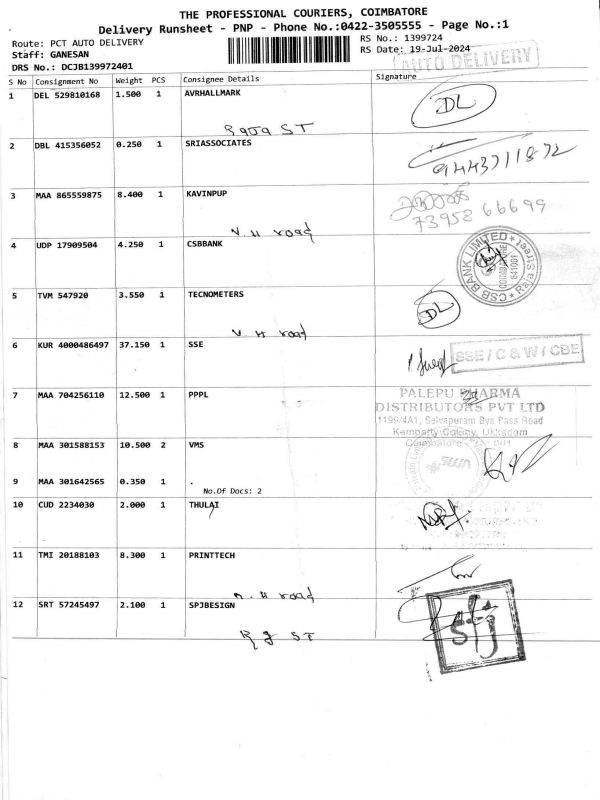 THE PROFESSIONAL COURIERS, COIMBATORE
Delivery Runsheet - PNP - Phone No.:0422-3505555 - Page No.:1
Route: PCT AUTO DELIVERY
RS No.: 1399724
Staff: GANESAN
RS Date: 19-Jul-2024
AUTO DELIVERY
DRS No.: DCJB139972401
S No Consignment No Weight PCS Consignee Details Signature
1 DEL 529810168 1.500 1 AVRHALLMARK
DL
Raja ST
2 DBL 415356052 0.250 1 SRIASSOCIATES
9443711872
3 MAA 865559875 8.400 1 KAVINPUP
73958 66699
V H road
4 UDP 17909504 4.250 1 CSBBANK
CSB BANK LIMITED
COIMBATORE
641001
5 TVM 547920 3.550 1 TECNOMETERS
DL
V H road
6 KUR 4000486497 37.150 1 SSE
SSE / C & W / CBE
7 MAA 704256110 12.500 1 PPPL
PALEPU PHARMA
DISTRIBUTORS PVT LTD
1199/4A1, Selvapuram Bye Pass Road
Colony, Ukkadam
Coimbatore
8 MAA 301588153 10.500 2 VMS
VMS
9 MAA 301642565 0.350 1 .
No.Of Docs: 2
10 CUD 2234030 2.000 1 THULAI
11 TMI 20188103 8.300 1 PRINTTECH
H road
12 SRT 57245497 2.100 1 SPJBESIGN
spj
R J ST